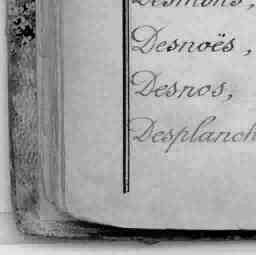 Desmons,
Desnoës,
Desnos,
Desplanch